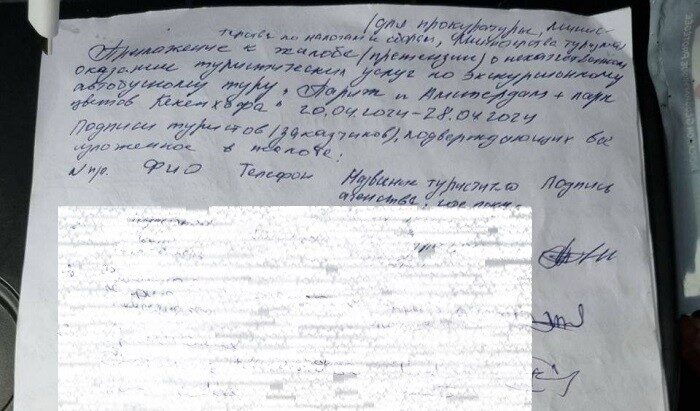 (для прокуратуры, Минис-
терства по налогам и сборам, Министерства туризма)
Приложение к жалобе (претензии) о некачественном
оказании туристических услуг по экскурсионному
автобусному туру „Париж и Амстердам + парк
цветов Кекенхофа" 20.04.2024-28.04.2024
Подписи туристов (заказчиков), подтверждающих все
изложенное в жалобе:
N п/о. ФИО Телефон Название туристич-го Подпись
агенства, где